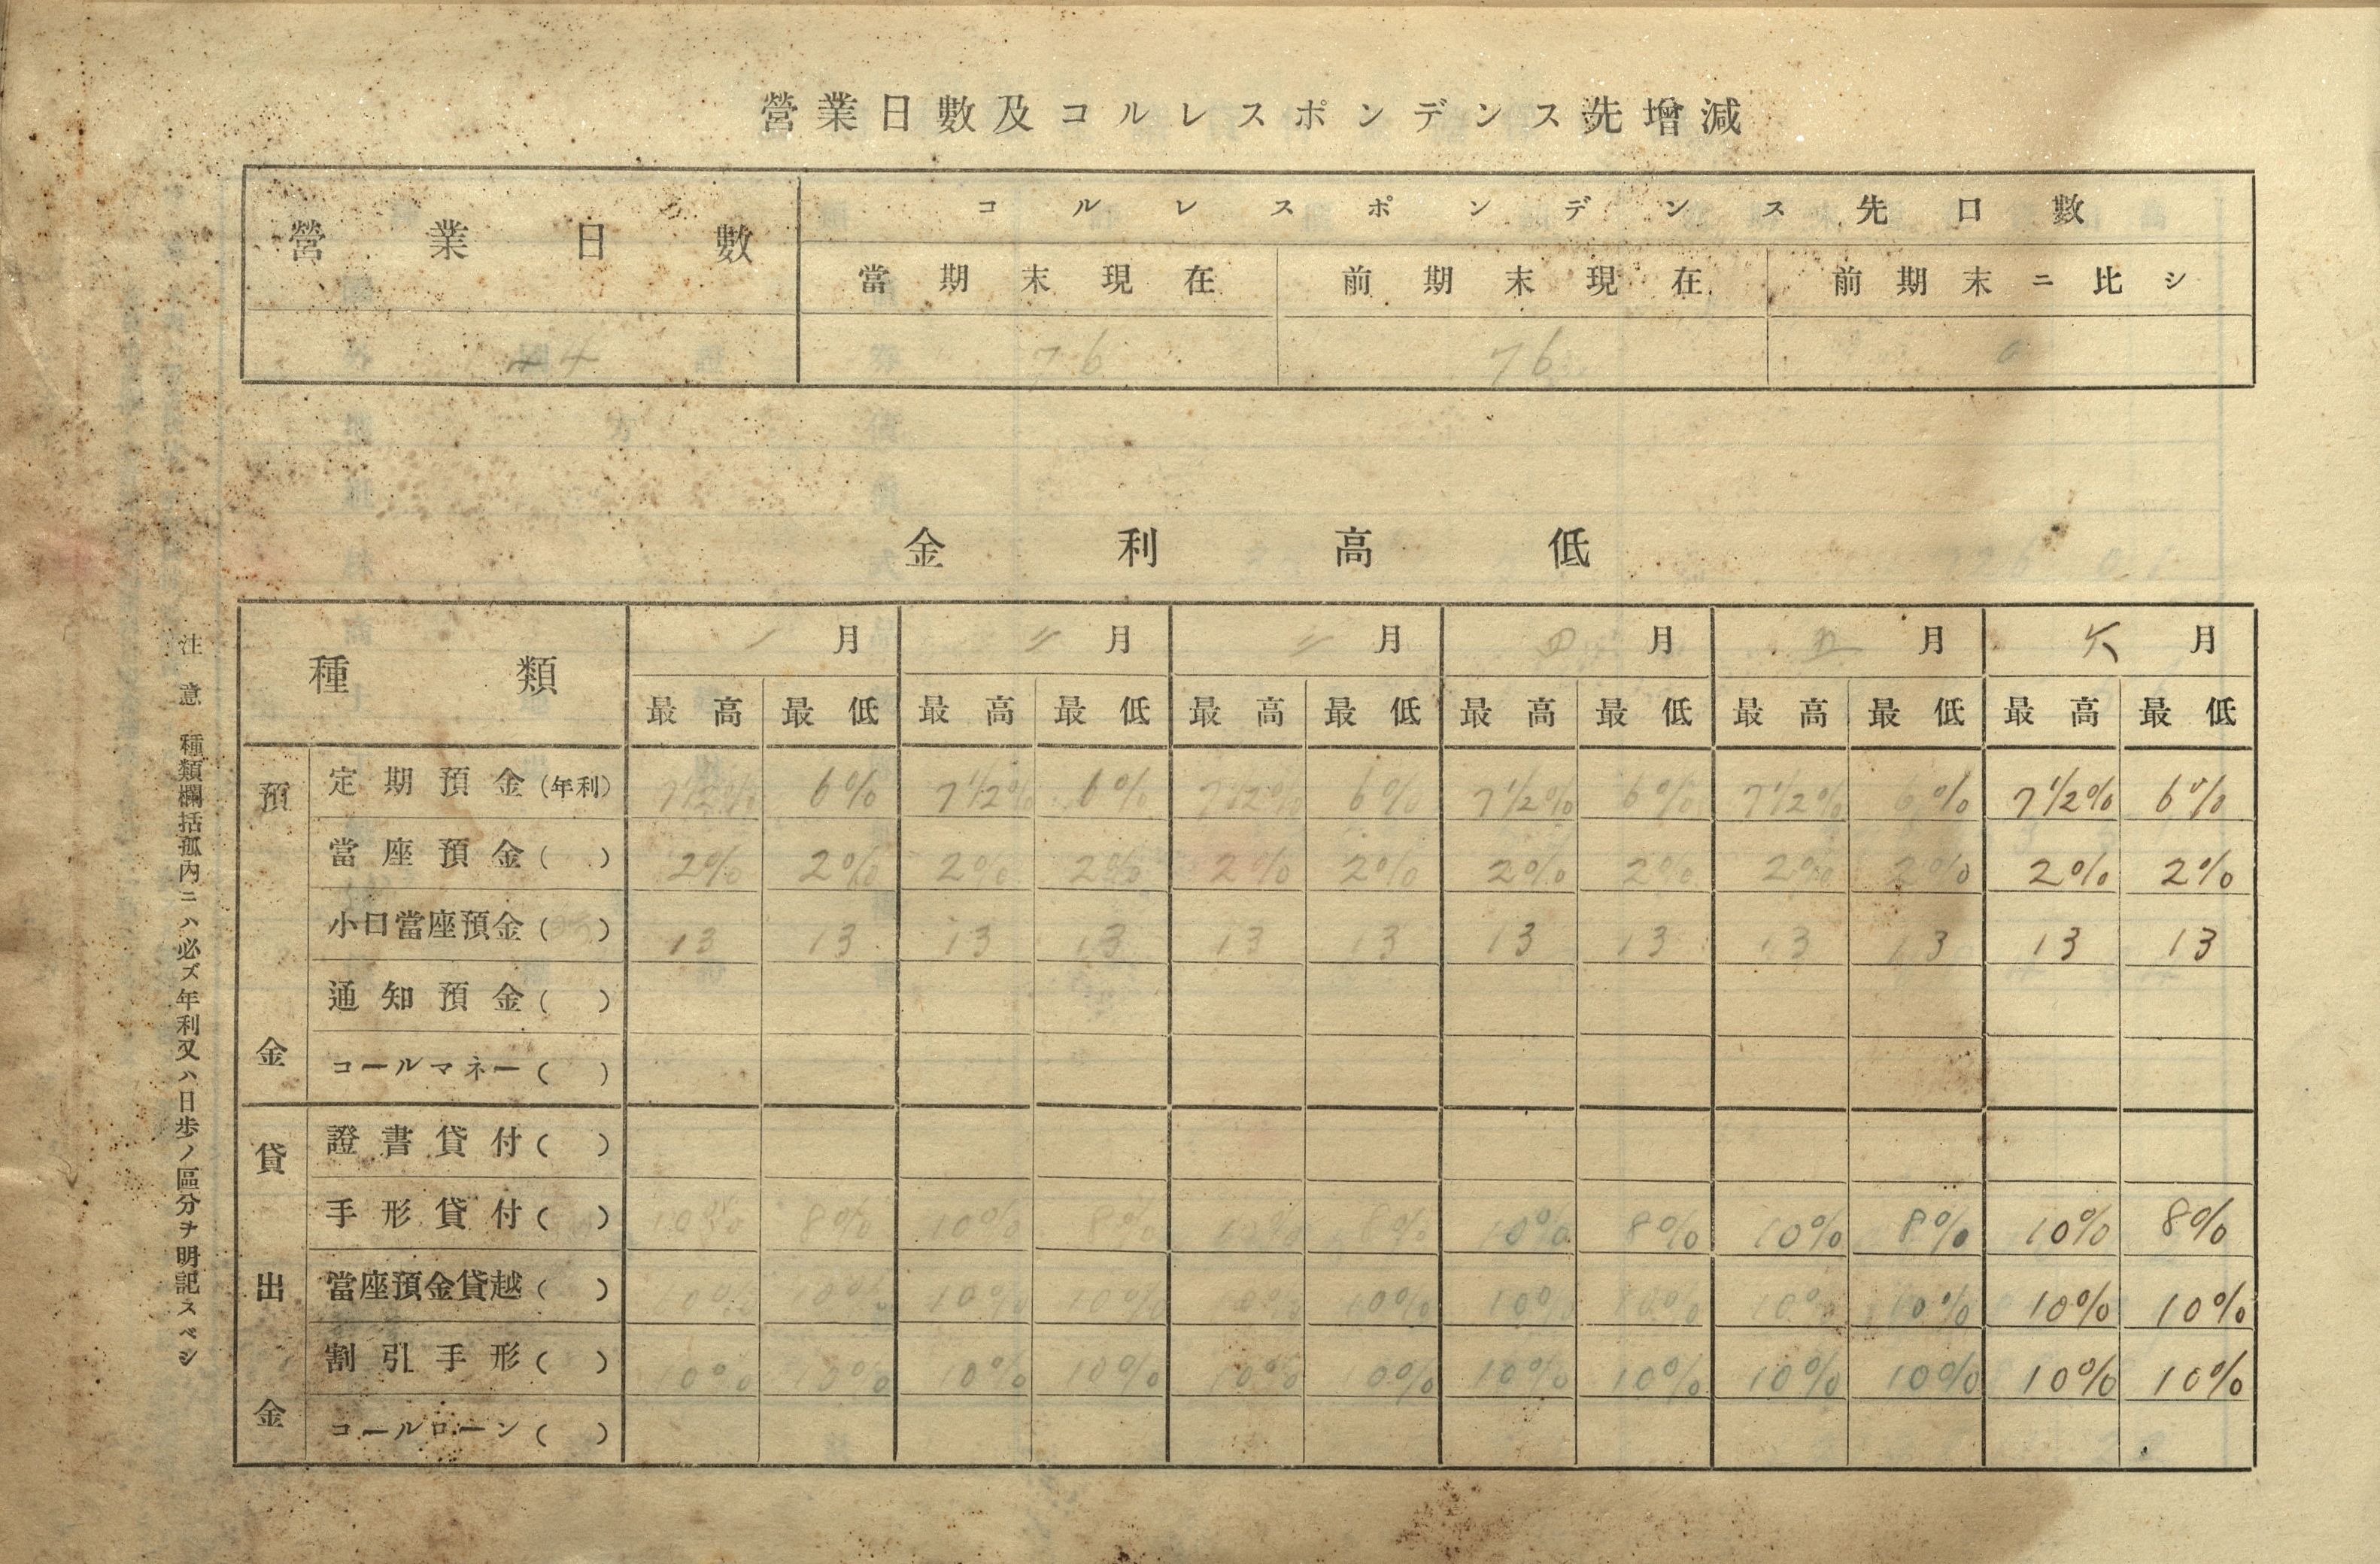 營業日數及コルレスポンデンス先增減
營業日數 コルレスポンデンス先口數
當期末現在 前期末現在 前期末ニ比シ
76 76 0
金利高低
種類 一月 二月 三月 四月 五月 六月
最高 最低 最高 最低 最高 最低 最高 最低 最高 最低 最高 最低
預金
定期預金(年利) 7 1/2% 6% 7 1/2% 6% 7 1/2% 6% 7 1/2% 6% 7 1/2% 6% 7 1/2% 6%
當座預金( ) 2% 2% 2% 2% 2% 2% 2% 2% 2% 2% 2% 2%
小口當座預金( ) 13 13 13 13 13 13 13 13 13 13 13 13
通知預金( )
コールマネー( )
貸出金
證書貸付( )
手形貸付( ) 10% 8% 10% 8% 10% 8% 10% 8% 10% 8% 10% 8%
當座預金貸越( ) 10% 10% 10% 10% 10% 10% 10% 10% 10% 10% 10% 10%
割引手形( ) 10% 10% 10% 10% 10% 10% 10% 10% 10% 10% 10% 10%
コールローン( )
注意 種類欄括孤內ニハ必ズ年利又ハ日步ノ區分ヲ明記スベシ